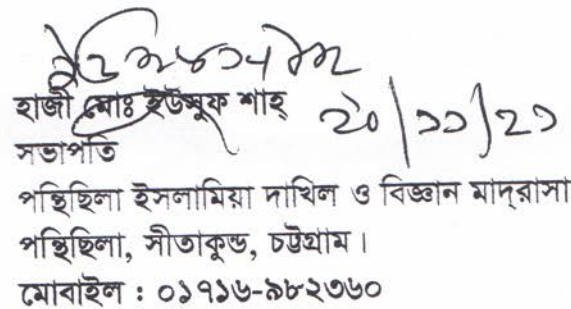 হাজী মোঃ ইউসুফ শাহ্
২০/১১/২১
সভাপতি
পন্থিছিলা ইসলামিয়া দাখিল ও বিজ্ঞান মাদ্‌রাসা
পন্থিছিলা, সীতাকুন্ড, চট্টগ্রাম।
মোবাইল : ০১৭১৬-৯৮২৩৬০